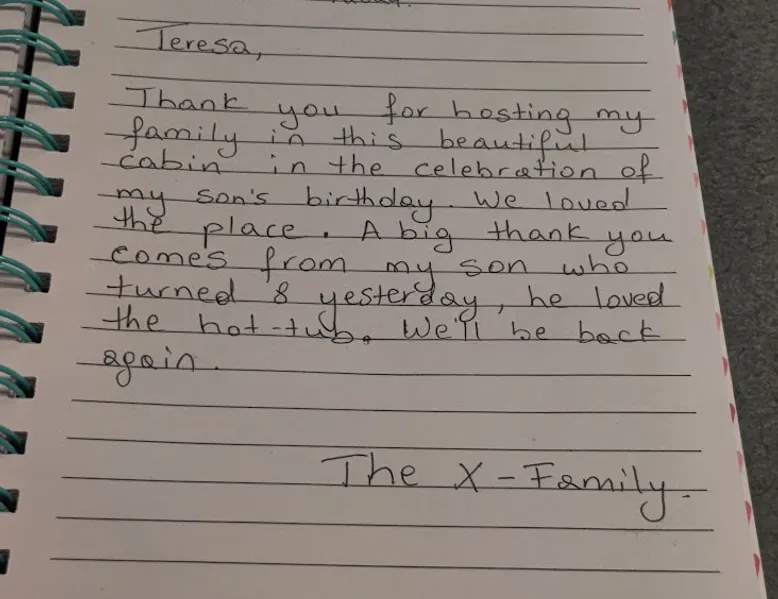 Teresa,
Thank you for hosting my
family in this beautiful
cabin in the celebration of
my son's birthday. We loved
the place. A big thank you
comes from my son who
turned 8 yesterday, he loved
the hot-tub. We'll be back
again.
The X-Family.